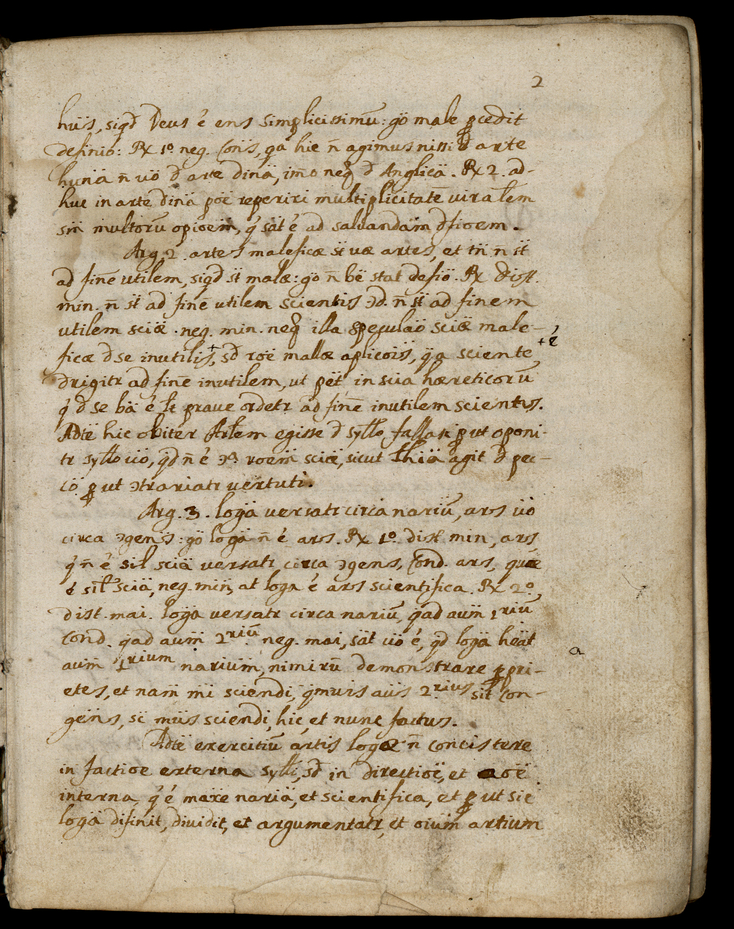 2
huis, siqd Deus é ens simplicissimũ: gö male pcedit
definiö: Rx 1º neg. Cons, qä hic ñ agimus nisi d arte
hunä ñ uö d arte dinä, imò neq d Anglicä. Rx 2. ad-
huc in arte dinä poë reperiri multiplicitatē uiralem
sm̃ multorũ opioem, q̃ sat é ad saluandam dfioem.
Arg 2. artes maleficæ st uæ artes, et tñ ñ st
ad finē utilem, siqd st malæ: gö ñ bẽ stat defiö. Rx dist.
min. ñ st ad finē utilem scientis ɔd. ñ st ad finem
utilem sciæ . neg. min. neq illa speculaö sciæ male-
ficæ d se inutilis +, sd röe mallæ aplicöis, qä sciente + é
drigitr ad finē inutilem, ut pet in scia hæreticorũ
q̃ d se bä é lt praue ordetr ad finē inutilem scientis.
Adte hic obiter Arlem egisse d syllo fallaci put oponi-
tr syllo uö, qd ñ é ɔᵃ röem sciæ, sicut Thiä agit d pec-
cö put ɔtrariatr uertuti.
Arg. 3. logä versatr circa nariũ, ars uö
circa ɔgens: gö logä ñ é ars. Rx 1º dist min, ars
q̃ ñ é sil sciä versatr circa ɔgens, Cond. ars, quæ
é sil sciä, neg. min, at loga é ars scientifica. Rx 2º
dist. mai. logä versatr circa nariũ, qad aum 1riũ
Cond. qad aum 2riũ neg. mai, sat uö é, qd logä heat
aum 1rium narium, nimirũ demonstrare ppri-
etes, et nam mi sciendi, qmuis aiis 2rius sit Con- a
gens, sc miis sciendi hic et nunc factus.
Adte exercitiũ artis logæ ñ concistere
in factiöe externa sylli, sd in directiöe, et aöe
interna, q̃ é mare nariä, et scientifica, et put sic
logä difinit, diuidit, et argumentatr, et oium artium